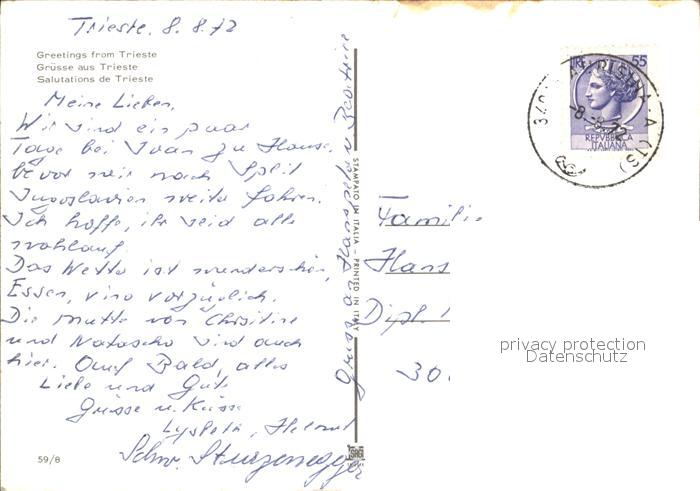 Trieste. 8. 8. 72
Greetings from Trieste
Grüsse aus Trieste
Salutations de Trieste
Meine Lieben,
Wir sind ein paar
Tage bei Ivan zu Hause.
bevor wir nach Split
Jugoslavien weita fahren.
Ich hoffe, ihr seid alle
wohlauf
Das Wetta ist wunderschön,
Essen, vino vorzüglich.
Die Mutta von Christine
und Natascha sind auch
hier. Auf Bald, alles
Liebe und Gute
Grüsse u. Küsse
Helmut
Schw. Sturzenegger
59/8
Gruss an Hanspeter u. Beatrice
STAMPATO IN ITALIA - PRINTED IN ITALY
SAGI
LIRE 55
REPVBBLICA
ITALIANA
AURISINA
-8.-8.72
(TS)
Familie
Hans
Dipl.
30
privacy protection
Datenschutz